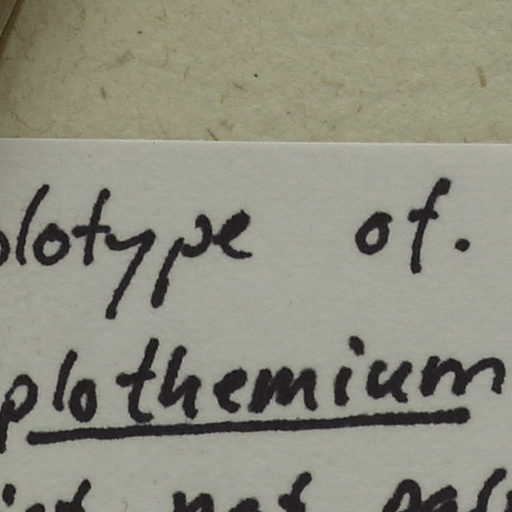 olotype of.
plothemium
not